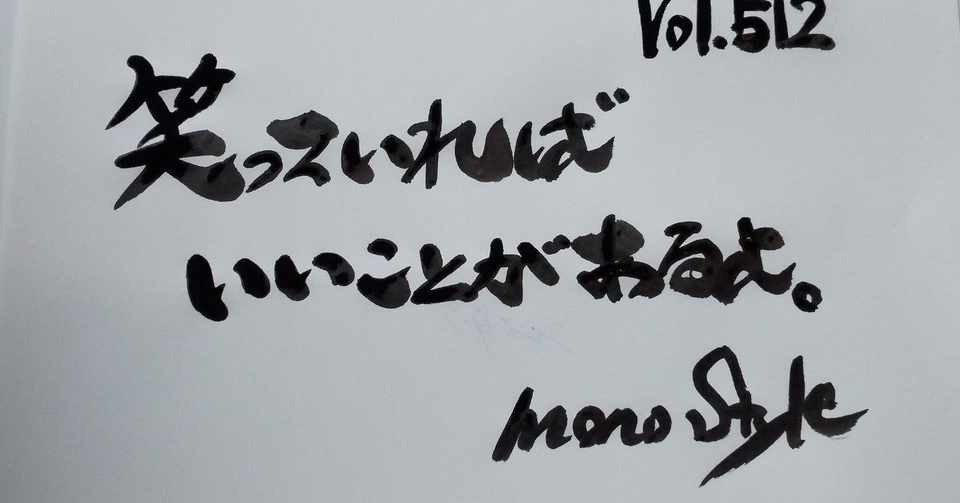 Vol.512
笑っていれば
いいことがあるよ。
mono Style